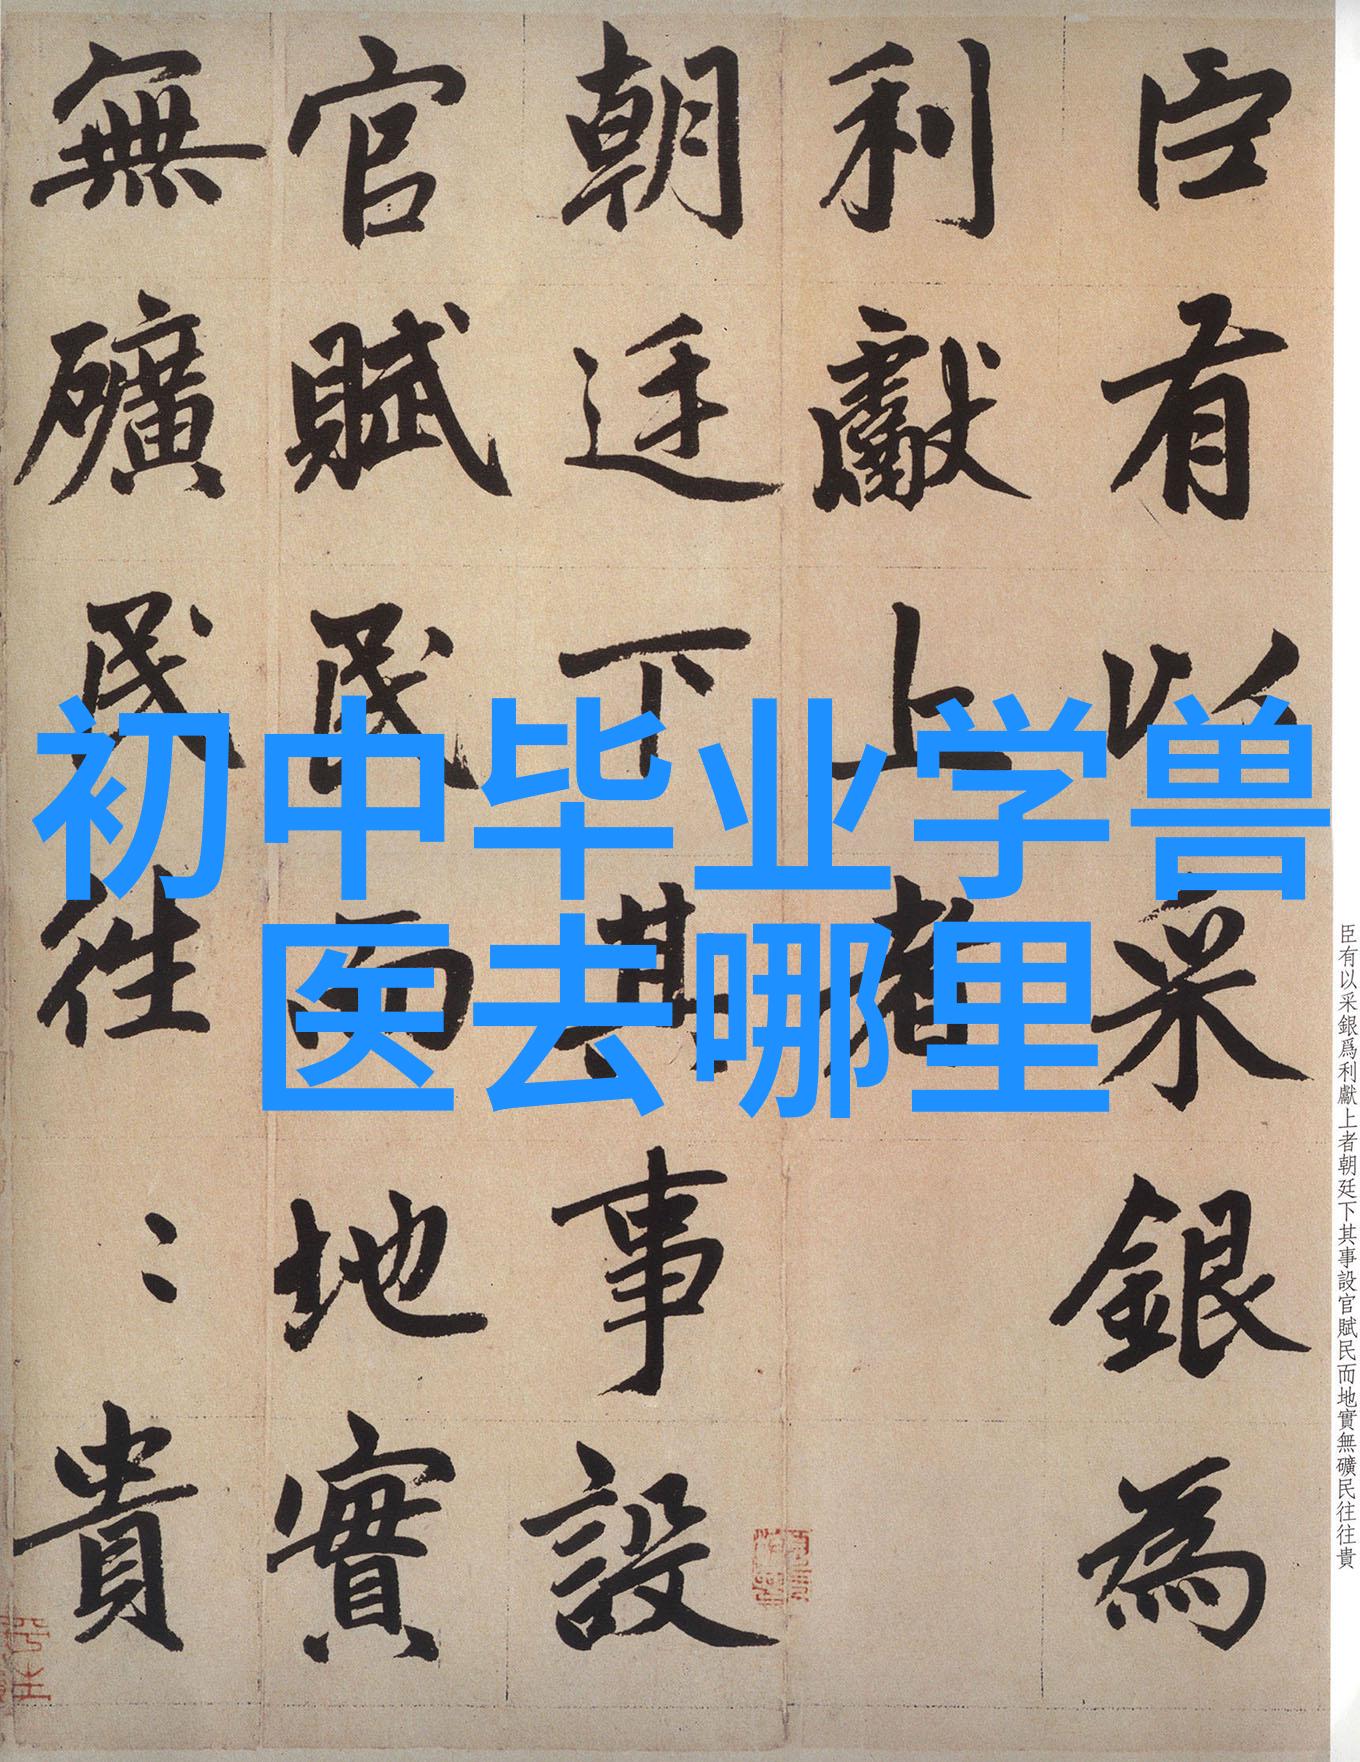 初中毕业学兽
医去哪里
臣有以采銀為
利獻上者
朝廷下其事設
官賦民而地實
無礦民往〻貴
臣有以采銀爲利獻上者朝廷下其事設官賦民而地實無礦民往往貴